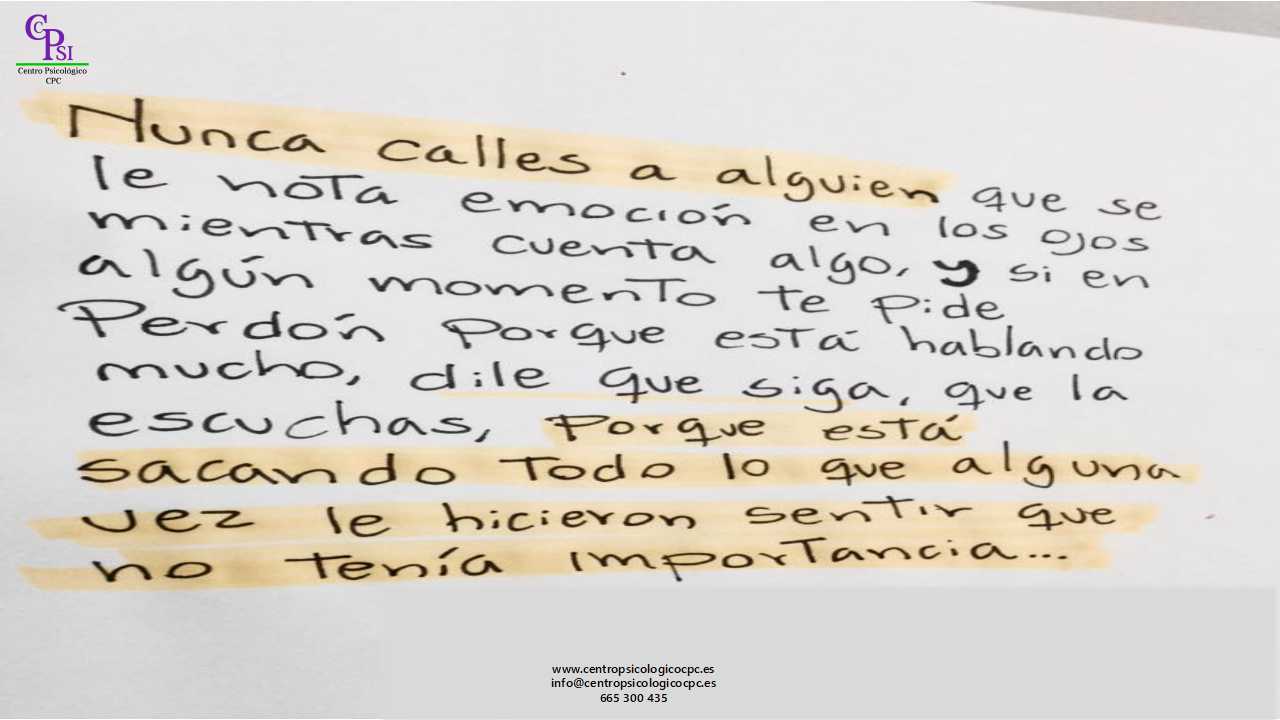 CCPSI
Centro Psicológico
CPC
Nunca calles a alguien que se
le nota emoción en los ojos
mientras cuenta algo, y si en
algún momento te pide
Perdón porque está hablando
mucho, dile que siga, que la
escuchas, porque está
sacando todo lo que alguna
vez le hicieron sentir que
no tenía importancia...
www.centropsicologicocpc.es
info@centropsicologicocpc.es
665 300 435